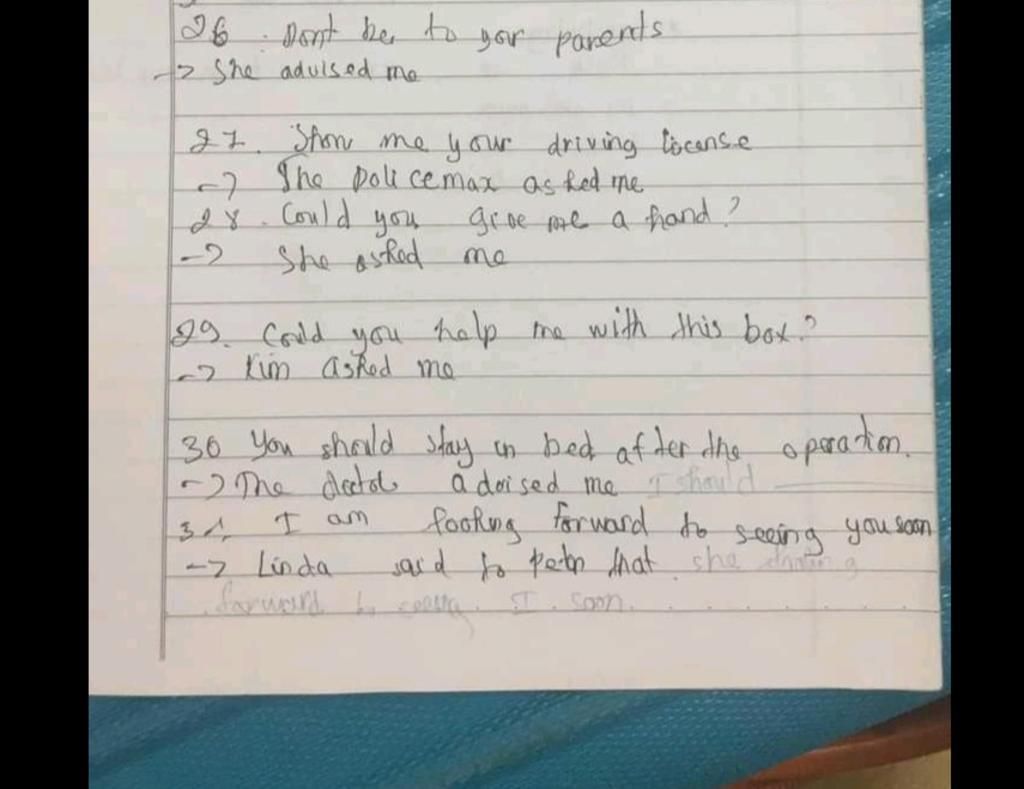 26. Dont lie to your parents
-> She advised me
27. Show me your driving licanse
-> The policeman asked me
28. Could you give me a hand?
-> She asked me
29. Could you help me with this box?
-> Kim asked me
30 You should stay in bed after the operation.
-> The doctor advised me I should
31. I am looking forward to seeing you soon
-> Linda said to that she
forward to I soon.